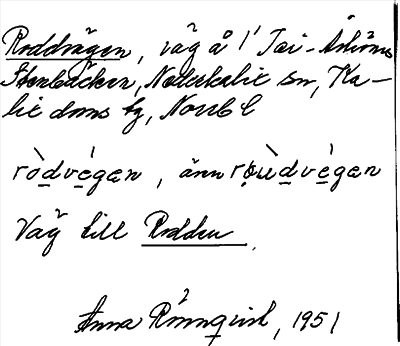 Roddvägen, väg å 1/ Tai-Åströms
Stenbäcken, Nederkalix sn, Ka-
lix doms hg, Norrb l
ròdvégæn, även rωdvégæn
Väg till Rodden.
Anna Rönnqvist, 1951